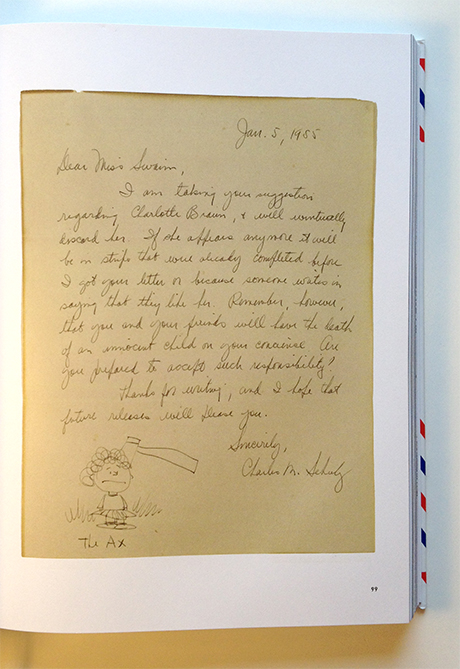 Jan. 5, 1955
Dear Miss Swaim,
I am taking your suggestion
regarding Charlotte Braun, & will eventually
discard her. If she appears anymore it will
be in strips that were already completed before
I got your letter or because someone writes in
saying that they like her. Remember, however,
that you and your friends will have the death
of an innocent child on your conscience. Are
you prepared to accept such responsibility?
Thanks for writing, and I hope that
future releases will please you.
Sincerely,
Charles M. Schulz
The Ax
99